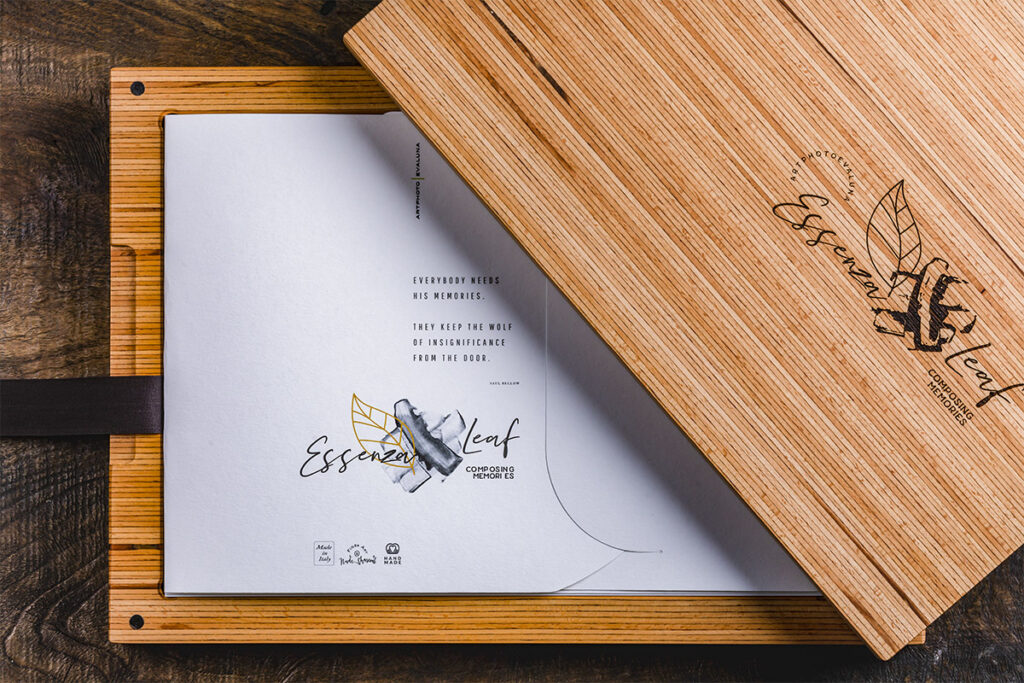 ARTPHOTO|EVALUNA
EVERYBODY NEEDS
HIS MEMORIES.
THEY KEEP THE WOLF
OF INSIGNIFICANCE
FROM THE DOOR.
SAUL BELLOW
Essenza Leaf
COMPOSING
MEMORIES
Made
in
Italy
HAND
MADE
ARTPHOTOEVALUNA
Essenza
Leaf
COMPOSING
MEMORIES